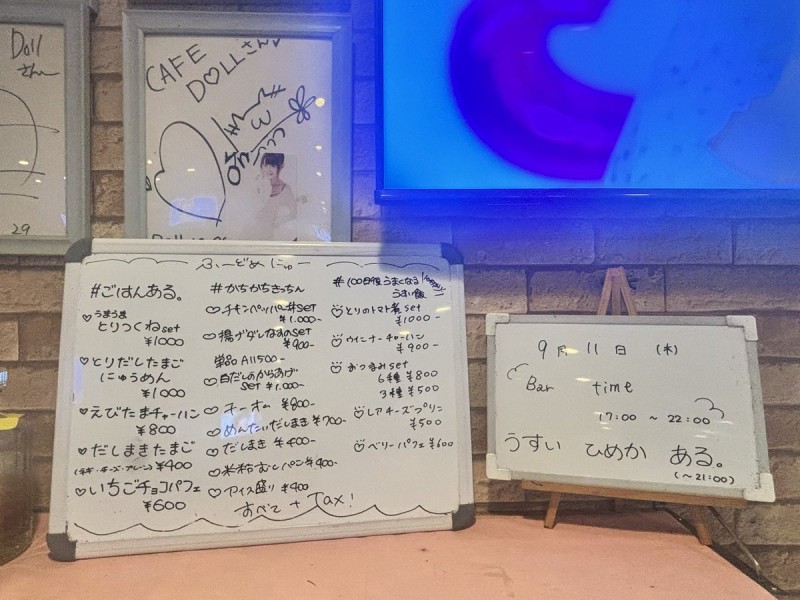 Doll
さん
29
CAFE
DOLLさん
ふーどめにゅー
#ごはんある。
うまうま
とりつくねset
¥1000
とりだしたまご
にゅうめん
¥1000
えびたまチャーハン
¥800
だしまきたまご
¥400
いちごチョコパフェ
¥600
#かちかちきっちん
¥1.000-
揚げダしなすのset
¥900-
単品 All500-
白だしのからあげ
set ¥1.000-
チーオム ¥800-
めんたいだしまき ¥700-
だしまき ¥400-
米粉むしパン ¥400-
アイス盛り ¥400
#100日後うまくなる
うまい飯
とりのトマト煮set
¥1000-
ウインナーチャーハン
¥900-
おつまみset
6種 ¥800
3種 ¥500
レアチーズプリン
¥500
ベリーパフェ ¥600
すべて + Tax!
9月 11日 (木)
Bar time
17:00 ~ 22:00
うすい ひめか ある。
(~21:00)